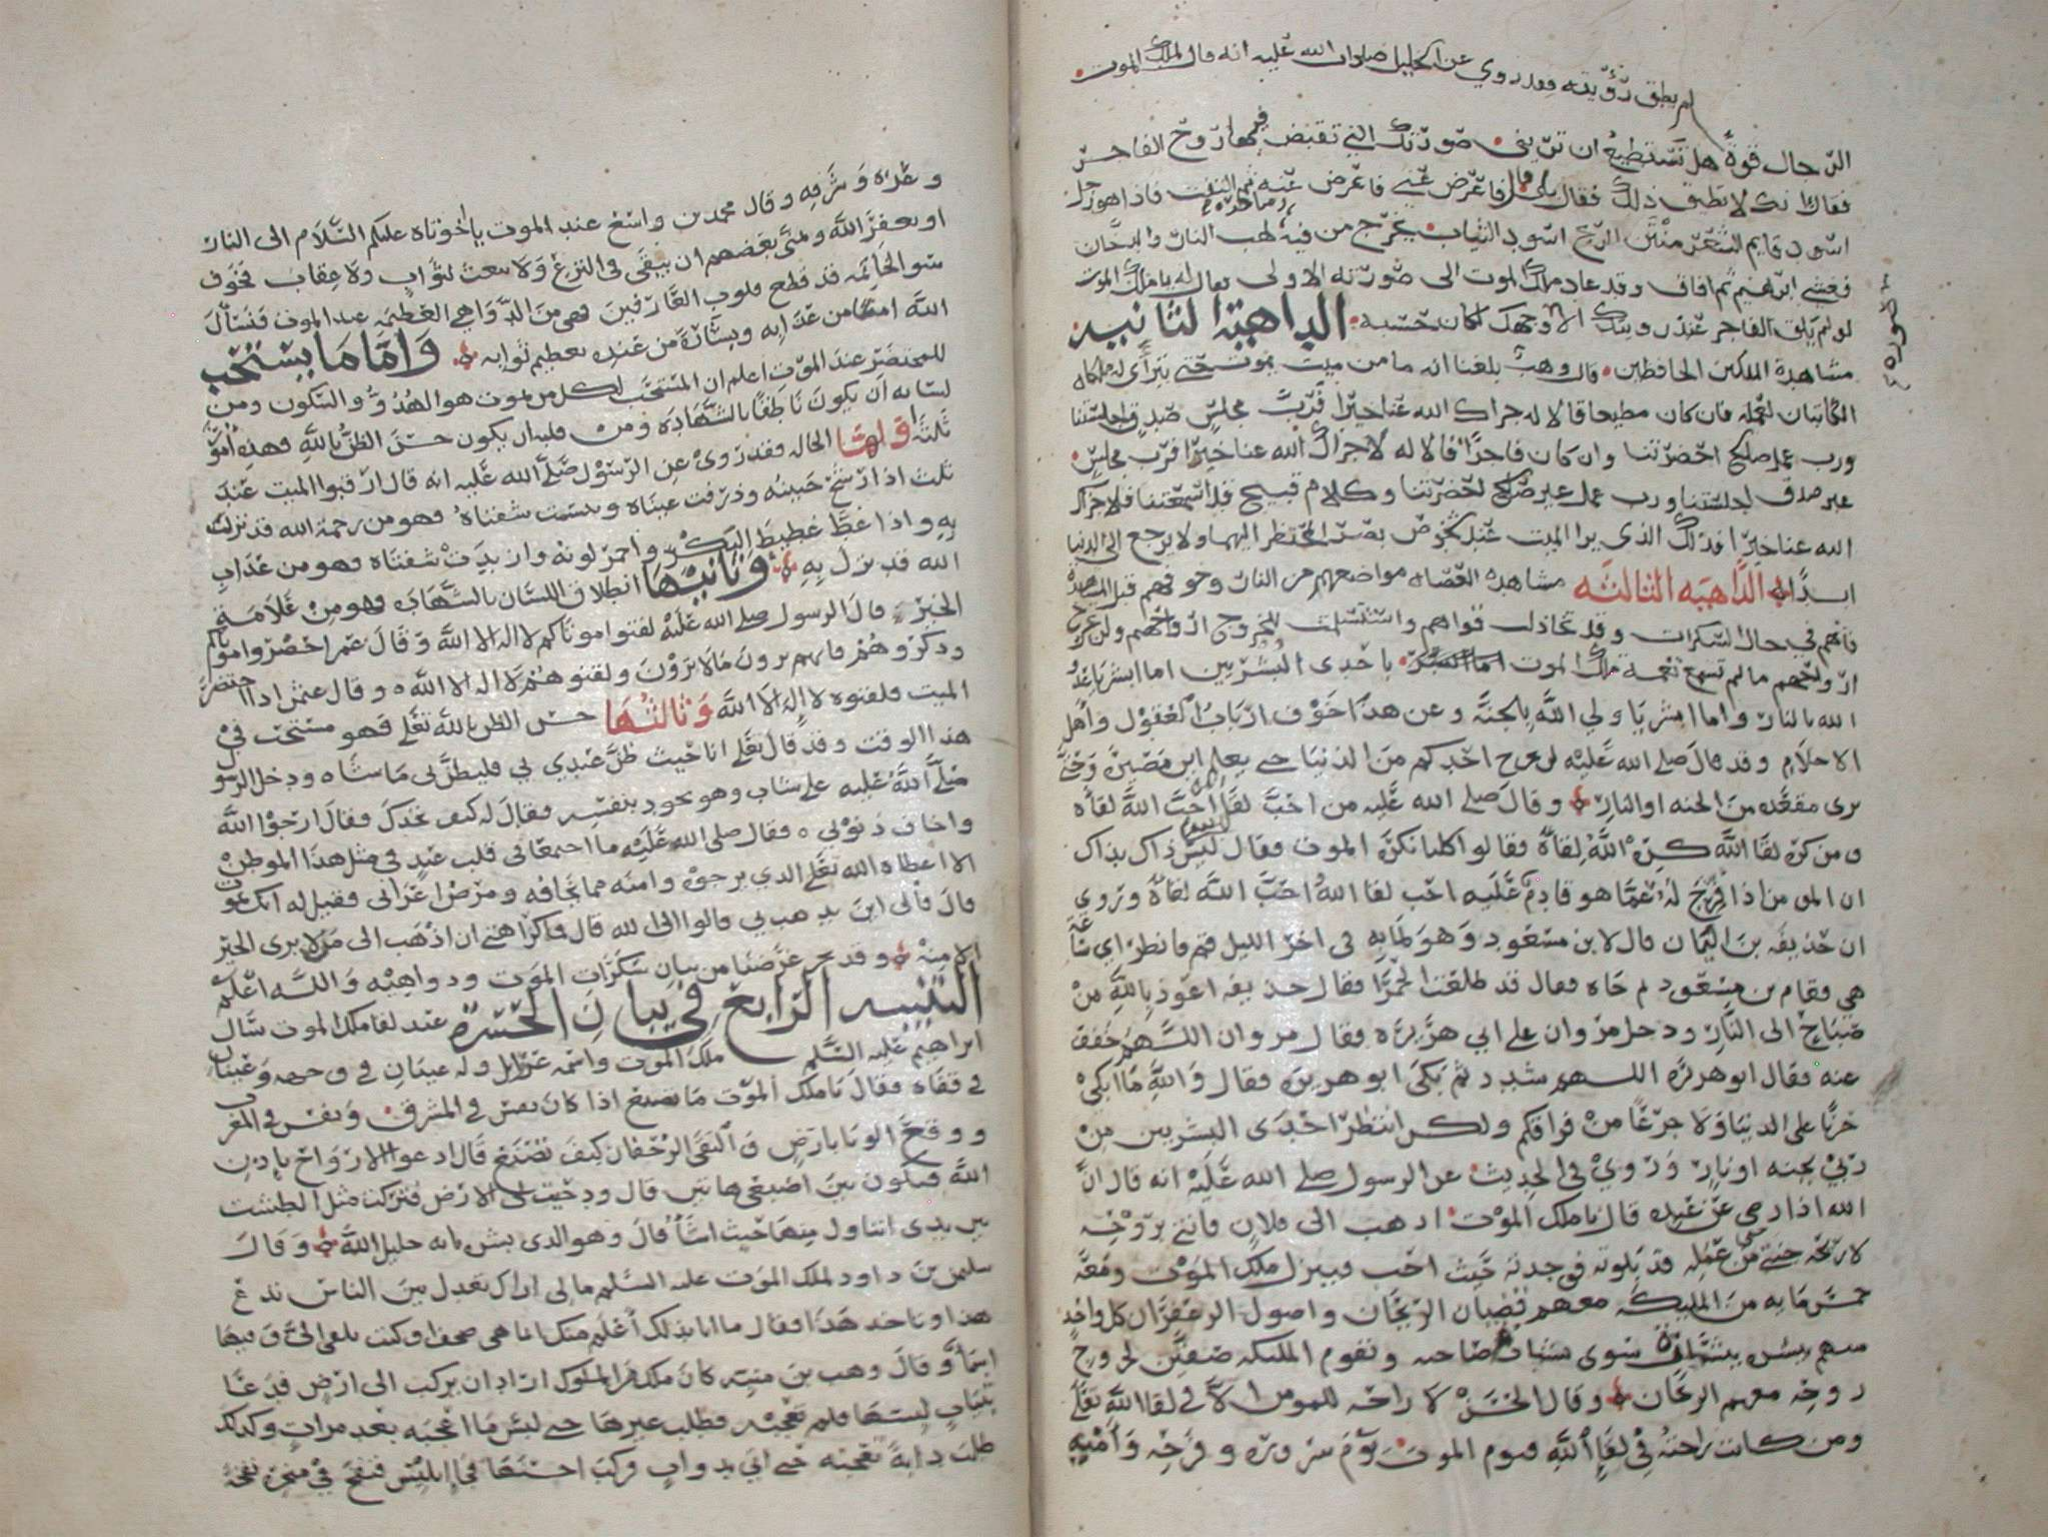 لم يطق رؤيته فقد روي عن الخليل صلوات الله عليه انه قال لملك الموت
الرجال قوة هل تستطيع ان تريني صورتك التي تقبض فيها روح الفاجر
فقال انك لا تطيق ذلك فقال بلى قال فاعرض عني فاعرض عنه ثم التفت فاذا هو رجل
اسود قايم الشعر منتن الريح اسود الثياب يخرج من فيه لهب النار والدخان
فغشي ابرهيم ثم افاق وقد عاد ملك الموت الى صورته الاولى فقال له يا ملك الموت
لو لم يلق الفاجر عند موته الا وجهك لكان حسبه الداهية الثانية
مشاهدة الملكين الحافظين قال وهب بلغنا انه ما من ميت يموت حتى يترأى له ملكاه
الكاتبان لعمله فان كان مطيعا قالا له جزاك الله عنا خيرا فرب مجلس صدق اجلستنا
ورب عمل صالح احضرتنا وان كان فاجرا قالا له لا جزاك الله عنا خيرا فرب مجلس
غير صدق اجلستنا ورب عمل غير صالح احضرتنا وكلام قبيح قد اسمعتنا فلا جزاك
الله عنا خيرا فذلك الذي يرا الميت عند شخوص بصر المحتظر اليهما ولا يرجع الى الدنيا
ابدا الداهية الثالثة مشاهدة العصاه مواضعهم من النار وخوفهم قبل المشاهدة
فانهم في حال السكرات وقد تخاذلت قواهم واستسلمت للخروج ارواحهم ولن تخرج
ارواحهم ما لم تسمع نغمة ملك الموت باحدى البشريين اما ابشر يا عدو
الله بالنار واما ابشر يا ولي الله بالجنة وعن هذا خوف ارباب العقول وأهل
الاحلام وقد قال صلى الله عليه لن يخرج احدكم من الدنيا حتى يعلم اين مصيره وحتى
يرى مقعده من الجنه او النار وقال صلى الله عليه من احب لقا الله احب الله لقاه
ومن كره لقا الله كره الله لقاه فقالوا كلنا نكره الموت فقال ليس ذاك بذاك
ان المومن اذا فرج له عما هو قادم عليه احب لقا الله احب الله لقاه وروي
ان حذيفه بن اليمان قال لابن مسعود وهو لما به في اخر الليل قم فانظر اي ساعة
هي فقام بن مسعود ثم جاه فقال قد طلعت الحمرا فقال حذيفه اعوذ بالله من
صباح الى النار ودخل مروان على ابي هريره فقال مروان اللهم خفف
عنه فقال ابو هريره اللهم شدد ثم بكى ابو هريره فقال والله ما ابكي
حزنا على الدنيا ولا جزعا من فراقكم ولكن انتظر احدى البشريين من
ربي بجنه او نار وروي في الحديث عن الرسول صلى الله عليه انه قال ان
الله اذا رضي عن عبده قال يا ملك الموت اذهب الى فلان فاتني بروحه
لاريحه حسبي من عمله قد بلوته فوجدته حيث احب فينزل ملك الموت ومعه
خمس مايه من المليكه معهم قضبان الريحان واصول الزعفران كل واحد
منهم يبشره ببشارة سوى بشارة صاحبه وتقوم المليكه صفين لخروج
روحه معهم الريحان وقال الحسن لا راحه للمومن الا في لقا الله تعلى
ومن كانت راحته في لقا الله فيوم الموت يوم سروره وفرحه وامنه
صورة
وعزه وشرفه وقال محمد بن واسع عند الموت يا اخوتاه عليكم السلام الى النار
او يعفو الله وتمنى بعضهم ان يبقى في النزع ولا يبعث لثواب ولا عقاب فخوف
سو الخاتمه قد قطع قلوب العارفين فهي من الدواهي العظيمه عند الموت فنسأل
الله امنا من عذابه وبشارة من عنده بعظيم ثوابه واما ما يستحب
للمحتضر عند الموت اعلم ان المستحب لكل من يموت هو الهدو والسكون ومن
لسانه ان يكون ناطقا بالشهادة ومن قلبه ان يكون حسن الظن بالله فهذه امور
ثلثة اولها الحاله فقد روي عن الرسول صلى الله عليه انه قال ارقبوا الميت عند
ثلث اذا رشح جبينه وذرفت عيناه ويبست شفتاه فهو من رحمة الله قد نزلت
به واذا غط غطيط البكر واحمر لونه واربدت شفتاه فهو من عذاب
الله قد نزل به وثانيها انطلاق اللسان بالشهادة وهو من علامة
الخير قال الرسول صلى الله عليه لقنوا موتاكم لا اله الا الله وقال عمر احضروا موتاكم
وذكروهم فانهم يرون ما لا ترون ولقنوهم لا اله الا الله وقال عثمن اذا احتضر
الميت فلقنوه لا اله الا الله وثالثها حسن الظن بالله تعلى فهو مستحب في
هذا الوقت وقد قال تعلى انا حيث ظن عبدي بي فليظن بي ما شاه ودخل الرسول
صلى الله عليه على شاب وهو يجود بنفسه فقال له كيف تجدك فقال ارجوا الله
واخاف ذنوبي فقال صلى الله عليه ما اجتمعا في قلب عبد في مثل هذا الموطن
الا اعطاه الله تعلى الذي يرجوه وامنه مما يخافه ومرض اعرابي فقيل له انك تموت
قال فالى اين يذهب بي قالوا الى الله قال فما كراهتي ان اذهب الى من لا يرى الخير
الا منه وقد نجز غرضنا من بيان سكرات الموت ودواهيه والله اعلم
التنبيه الرابع في بيان الحسرة عند لقا ملك الموت سال
ابراهيم عليه السلم ملك الموت واسمه عزرايل وله عينان في وجهه وعينان
في قفاه فقال يا ملك الموت ما تصنع اذا كان نفس في المشرق ونفس في المغرب
ووقع الوبا بارض والتقى الزحفان كيف تصنع قال ادعوا الارواح باذن
الله فيكون بين اصبعي هاتين قال ودحيت لي الارض فتركت مثل الطشت
بين يدي اتناول منها حيث اشأ قال وهو الذي بشره بانه خليل الله وقال
سليمن بن داود لملك الموت عليه السلم مالي لا اراك تعدل بين الناس تدع
هذا وتاخذ هذا فقال ما انا بذلك أعلم منك انما هي صحف او كتب تلقى الي فيها
اسمأ وقال وهب بن منبه كان ملك من الملوك اراد ان يركب الى ارض فدعا
بثياب ليلبسها فلم تعجبه فطلب غيرها حتى لبس ما اعجبه بعد مرات وكذلك
طلب دابة فلم تعجبه حتى اتي بدواب فركب احسنها فجا ابليس فنفخ في منخره نفخة